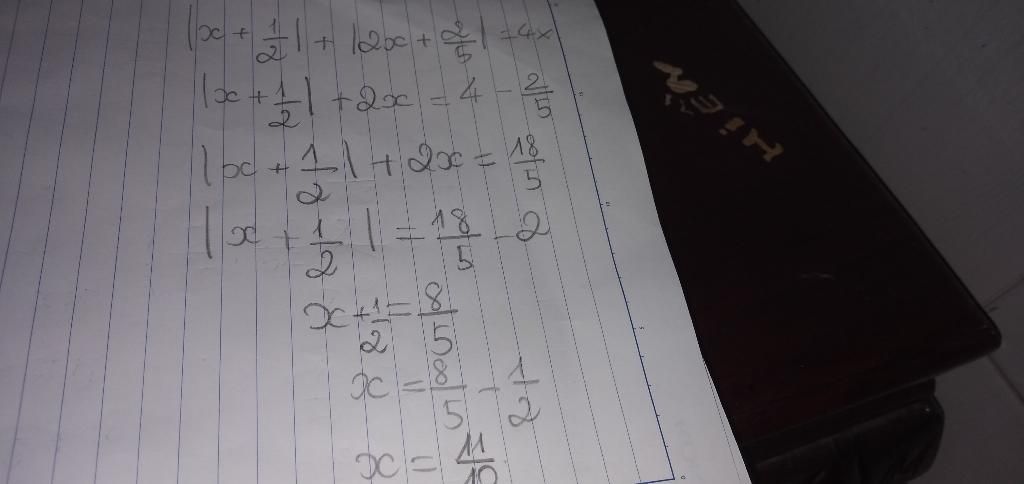 |x + 1/2| + |2x + 2/5| = 4x
|x + 1/2| + 2x = 4 - 2/5
|x + 1/2| + 2x = 18/5
|x + 1/2| = 18/5 - 2
x + 1/2 = 8/5
x = 8/5 - 1/2
x = 11/10